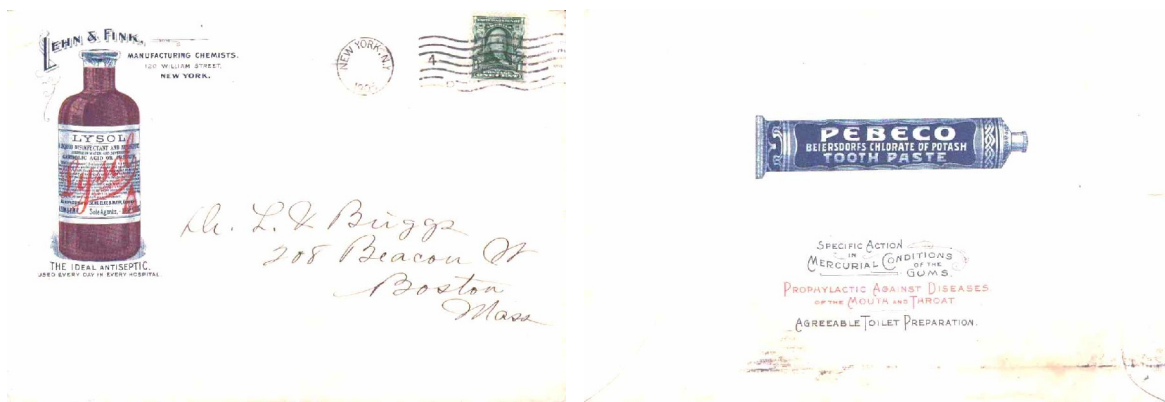 LEHN & FINK,
MANUFACTURING CHEMISTS.
120 WILLIAM STREET,
NEW YORK.
NEW YORK, N.Y.
4
LYSOL
Lysol
Sole Agents.
THE IDEAL ANTISEPTIC.
USED EVERY DAY IN EVERY HOSPITAL
Dr. L. V. Briggs
208 Beacon St
Boston
Mass
PEBECO
BEIERSDORFS CHLORATE OF POTASH
TOOTH PASTE
SPECIFIC ACTION
IN
MERCURIAL CONDITIONS
OF THE
GUMS.
PROPHYLACTIC AGAINST DISEASES
OF THE MOUTH AND THROAT
AGREEABLE TOILET PREPARATION.